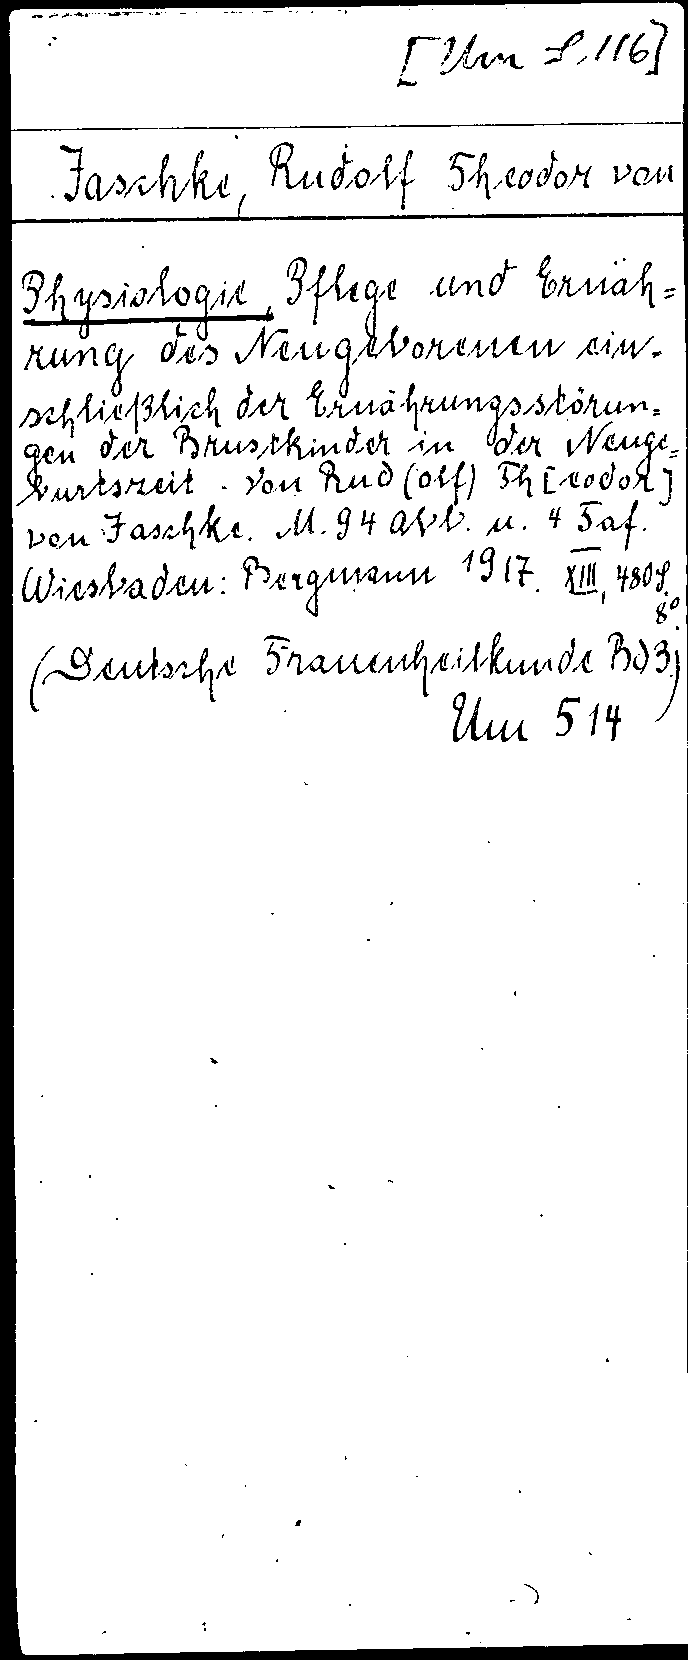 [Um S. 116]
Jaschke, Rudolf Theodor von
Physiologie, Pflege und Ernäh=
rung des Neugeborenen ein-
schließlich der Ernährungsstörun=
gen der Brustkinder in der Neuge=
burtszeit. Von Rud(olf) Th[eodor]
von Jaschke. M. 94 Abb. u. 4 Taf.
Wiesbaden: Bergmann 1917. XIII, 480 S.
8°.
(Deutsche Frauenheilkunde Bd 3)
Um 514